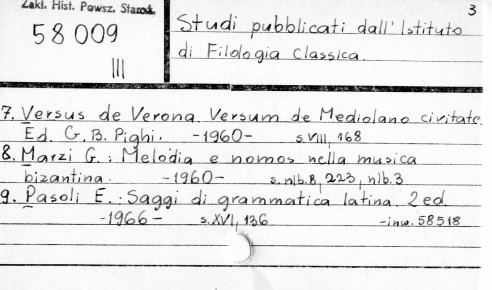 Zakł. Hist. Powsz. Staroż.
3
58 009
III
Studi pubblicati dall'Istituto
di Filologia Classica.
7. Versus de Verona. Versum de Mediolano civitate.
Ed. G. B. Pighi. -1960- s. VIII, 168
8. Marzi G.: Melodia e nomos nella musica
bizantina. -1960- s. nlb. 8, 223, nlb. 3
9. Pasoli E.: Saggi di grammatica latina. 2 ed.
-1966- s. XVI, 136 -inw. 58518